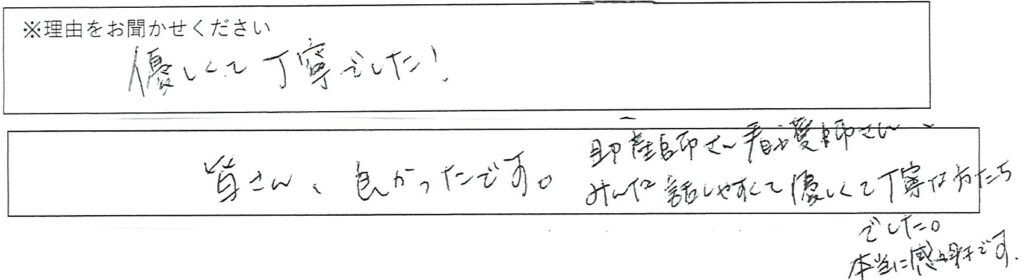 ※理由をお聞かせください
優しくて丁寧でした!
皆さん、良かったです。
助産師さん看護師さん、
みんな話しやすくて優しくて丁寧な方たち
でした。
本当に感謝です。